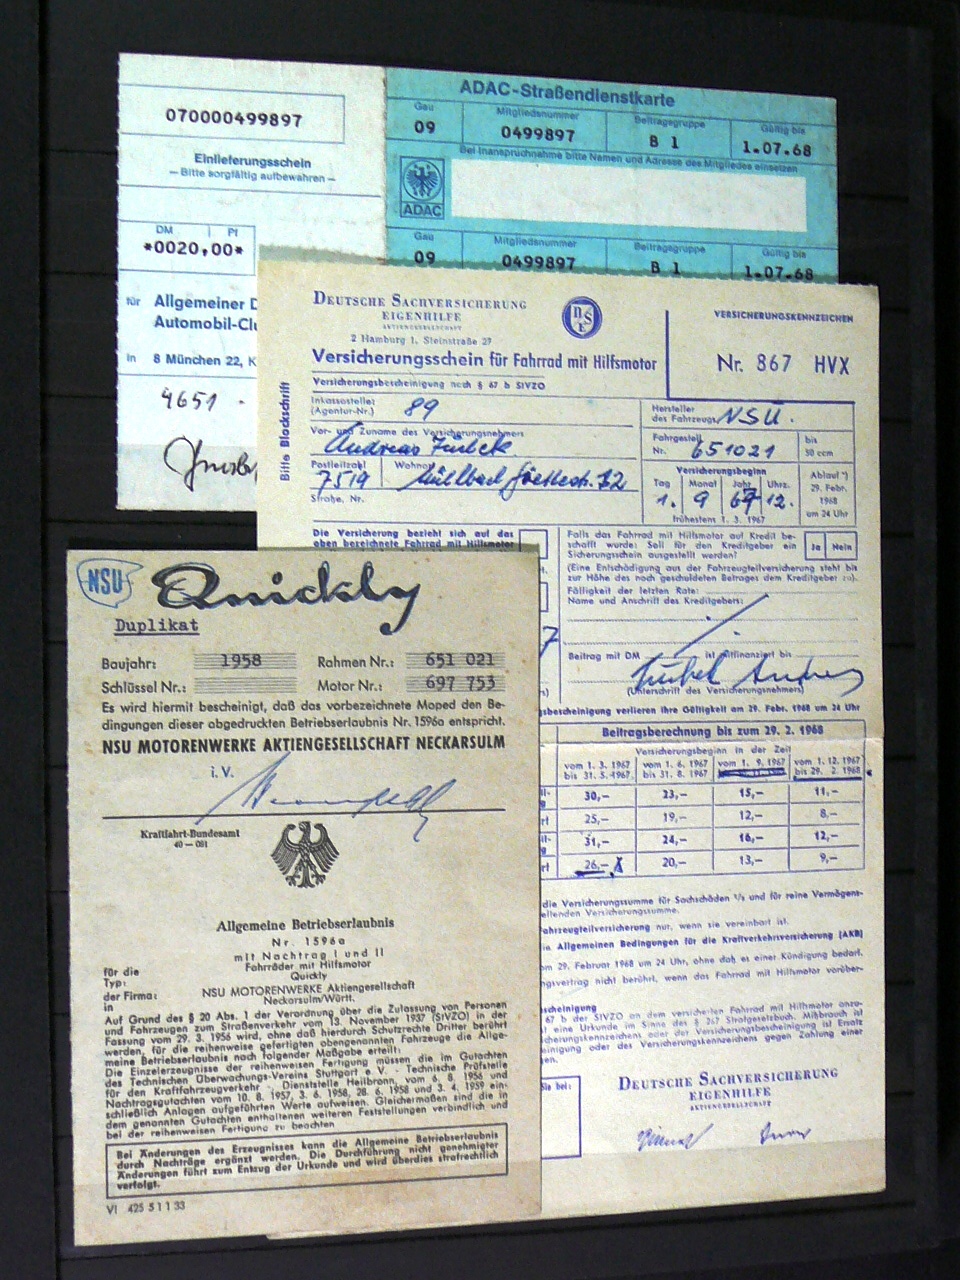 070000499897
Einlieferungsschein
— Bitte sorgfältig aufbewahren —
DM Pf
*0020,00*
für Allgemeiner D
Automobil-Clu
in 8 München 22, K
4651
ADAC-Straßendienstkarte
Gau Mitgliedsnummer Beitragsgruppe Gültig bis
09 0499897 B 1 1.07.68
Bei Inanspruchnahme bitte Namen und Adresse des Mitgliedes einsetzen
ADAC
Gau Mitgliedsnummer Beitragsgruppe Gültig bis
09 0499897 B 1 1.07.68
DEUTSCHE SACHVERSICHERUNG
EIGENHILFE
AKTIENGESELLSCHAFT
2 Hamburg 1, Steinstraße 27
DSE
VERSICHERUNGSKENNZEICHEN
Nr. 867 HVX
Versicherungsschein für Fahrrad mit Hilfsmotor
Versicherungsbescheinigung nach § 67 b StVZO
Bitte Blockschrift
Inkassostelle:
(Agentur-Nr.) 89
Vor- und Zuname des Versicherungsnehmers
Andreas
Postleitzahl Wohnort
7519 Mühlbach Goethestr. 32
Straße, Nr.
Hersteller
des Fahrzeugs NSU.
Fahrgestell
Nr. 651021
bis
50 ccm
Versicherungsbeginn
Tag Monat Jahr Uhrz.
1. 9 67 12.
frühestens 1. 3. 1967
Ablauf *)
29. Febr.
1968
um 24 Uhr
Die Versicherung bezieht sich auf das
oben bezeichnete Fahrrad mit Hilfsmotor
Falls das Fahrrad mit Hilfsmotor auf Kredit be-
schafft wurde: Soll für den Kreditgeber ein
Sicherungsschein ausgestellt werden?
Ja Nein
(Eine Entschädigung aus der Fahrzeugteilversicherung steht bis
zur Höhe des noch geschuldeten Betrages dem Kreditgeber zu).
Fälligkeit der letzten Rate:
Name und Anschrift des Kreditgebers:
Beitrag mit DM ist mitfinanziert bis
(Unterschrift des Versicherungsnehmers)
sbescheinigung verlieren ihre Gültigkeit am 29. Febr. 1968 um 24 Uhr
Beitragsberechnung bis zum 29. 2. 1968
Versicherungsbeginn in der Zeit
vom 1. 3. 1967 vom 1. 6. 1967 vom 1. 9. 1967 vom 1. 12. 1967
bis 31. 5. 1967 bis 31. 8. 1967 bis 29. 2. 1968
30,— 23,— 15,— 11,—
25,— 19,— 12,— 8,—
31,— 24,— 16,— 12,—
26,— 20,— 13,— 9,—
die Versicherungssumme für Sachschäden 1/5 und für reine Vermögens-
ellenden Versicherungssumme.
ahrzeugteilversicherung nur, wenn sie vereinbart ist.
ie Allgemeinen Bedingungen für die Kraftverkehrsversicherung (AKB)
om 29. Februar 1968 um 24 Uhr, ohne daß es einer Kündigung bedarf.
ngsvertrag nicht berührt, wenn das Fahrrad mit Hilfsmotor vorüber-
scheinigung
67 b der StVZO an dem versicherten Fahrrad mit Hilfsmotor anzu-
t eine Urkunde im Sinne des § 267 Strafgesetzbuch. Mißbrauch ist
cherungskennzeichens oder der Versicherungsbescheinigung ist Ersatz
einigung oder des Versicherungskennzeichens gegen Zahlung einer
en.
Sie bei:
DEUTSCHE SACHVERSICHERUNG
EIGENHILFE
AKTIENGESELLSCHAFT
NSU Quickly
Duplikat
Baujahr: 1958 Rahmen Nr.: 651 021
Schlüssel Nr.: Motor Nr.: 697 753
Es wird hiermit bescheinigt, daß das vorbezeichnete Moped den Be-
dingungen dieser abgedruckten Betriebserlaubnis Nr. 1596a entspricht.
NSU MOTORENWERKE AKTIENGESELLSCHAFT NECKARSULM
i. V.
Kraftfahrt-Bundesamt
40 — 001
Allgemeine Betriebserlaubnis
Nr. 1596a
mit Nachtrag I und II
für die Fahrräder mit Hilfsmotor
Typ: Quickly
der Firma: NSU MOTORENWERKE Aktiengesellschaft
in Neckarsulm/Württ.
Auf Grund des § 20 Abs. 1 der Verordnung über die Zulassung von Personen
und Fahrzeugen zum Straßenverkehr vom 13. November 1937 (StVZO) in der
Fassung vom 29. 3. 1956 wird, ohne daß hierdurch Schutzrechte Dritter berührt
werden, für die reihenweise gefertigten obengenannten Fahrzeuge die Allge-
meine Betriebserlaubnis nach folgender Maßgabe erteilt:
Die Einzelerzeugnisse der reihenweisen Fertigung müssen die im Gutachten
des Technischen Überwachungs-Vereins Stuttgart e. V. - Technische Prüfstelle
für den Kraftfahrzeugverkehr - Dienststelle Heilbronn, vom 6. 8. 1956 und
Nachtragsgutachten vom 10. 8. 1957, 3. 6. 1958, 28. 6. 1958 und 3. 4. 1959 ein-
schließlich Anlagen aufgeführten Werte aufweisen. Gleichermaßen sind die in
dem genannten Gutachten enthaltenen weiteren Feststellungen verbindlich und
bei der reihenweisen Fertigung zu beachten
Bei Änderungen des Erzeugnisses kann die Allgemeine Betriebserlaubnis
durch Nachträge ergänzt werden. Die Durchführung nicht genehmigter
Änderungen führt zum Entzug der Urkunde und wird überdies strafrechtlich
verfolgt.
VI 425 5 1 1 33